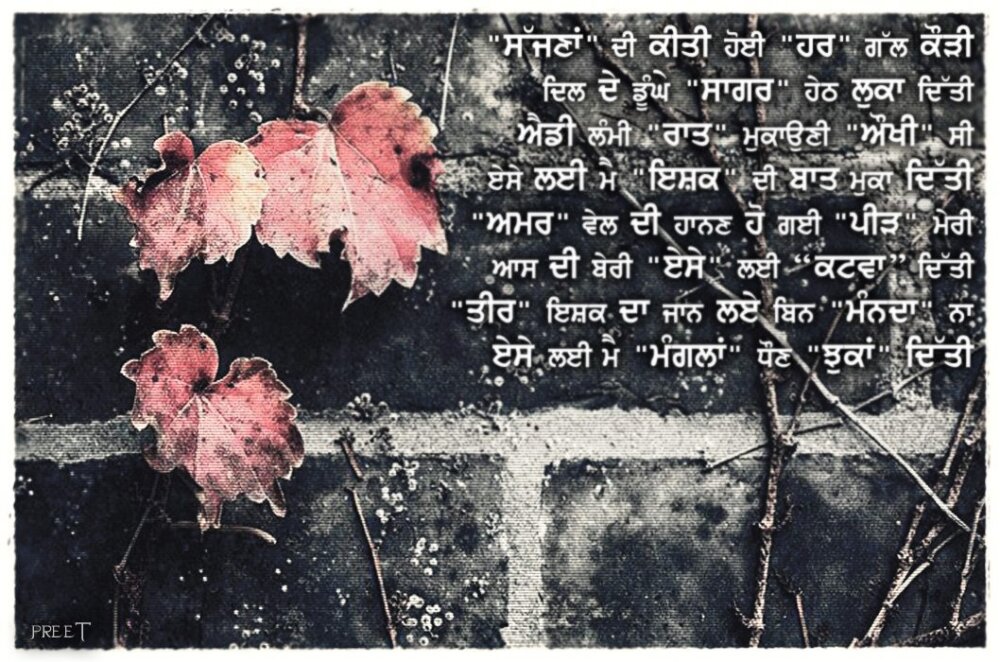 "ਸੱਜਣਾਂ" ਦੀ ਕੀਤੀ ਹੋਈ "ਹਰ" ਗੱਲ ਕੌੜੀ
ਦਿਲ ਦੇ ਡੂੰਘੇ "ਸਾਗਰ" ਹੇਠ ਲੁਕਾ ਦਿੱਤੀ
ਐਡੀ ਲੰਮੀ "ਰਾਤ" ਮੁਕਾਉਣੀ "ਔਖੀ" ਸੀ
ਏਸੇ ਲਈ ਮੈ "ਇਸ਼ਕ" ਦੀ ਬਾਤ ਮੁਕਾ ਦਿੱਤੀ
"ਅਮਰ" ਵੇਲ ਦੀ ਹਾਨਣ ਹੋ ਗਈ "ਪੀੜ" ਮੇਰੀ
ਆਸ ਦੀ ਬੇਰੀ "ਏਸੇ" ਲਈ “ਕਟਵਾ” ਦਿੱਤੀ
"ਤੀਰ" ਇਸ਼ਕ ਦਾ ਜਾਨ ਲਏ ਬਿਨ "ਮੰਨਦਾ" ਨਾ
ਏਸੇ ਲਈ ਮੈ "ਮੰਗਲਾਂ" ਧੌਣ "ਝੁਕਾਂ" ਦਿੱਤੀ
PREET